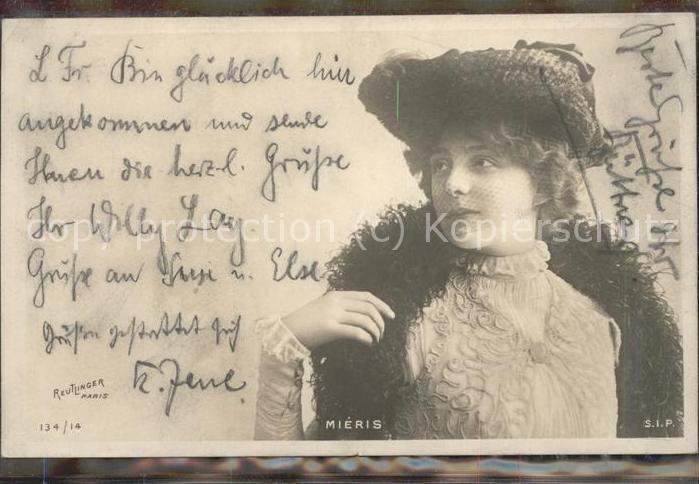 L Fr. Bin glücklich hier
angekommen und sende
Ihnen die herzl. Grüße
Ihr Willy Lay.
Grüße an Susi u. Else
Grüßen gestattet sich
K. Jene
REUTLINGER
PARIS
134/14
MIÉRIS
S.I.P.
Beste Grüße
copyright protection (C) Kopierschutz